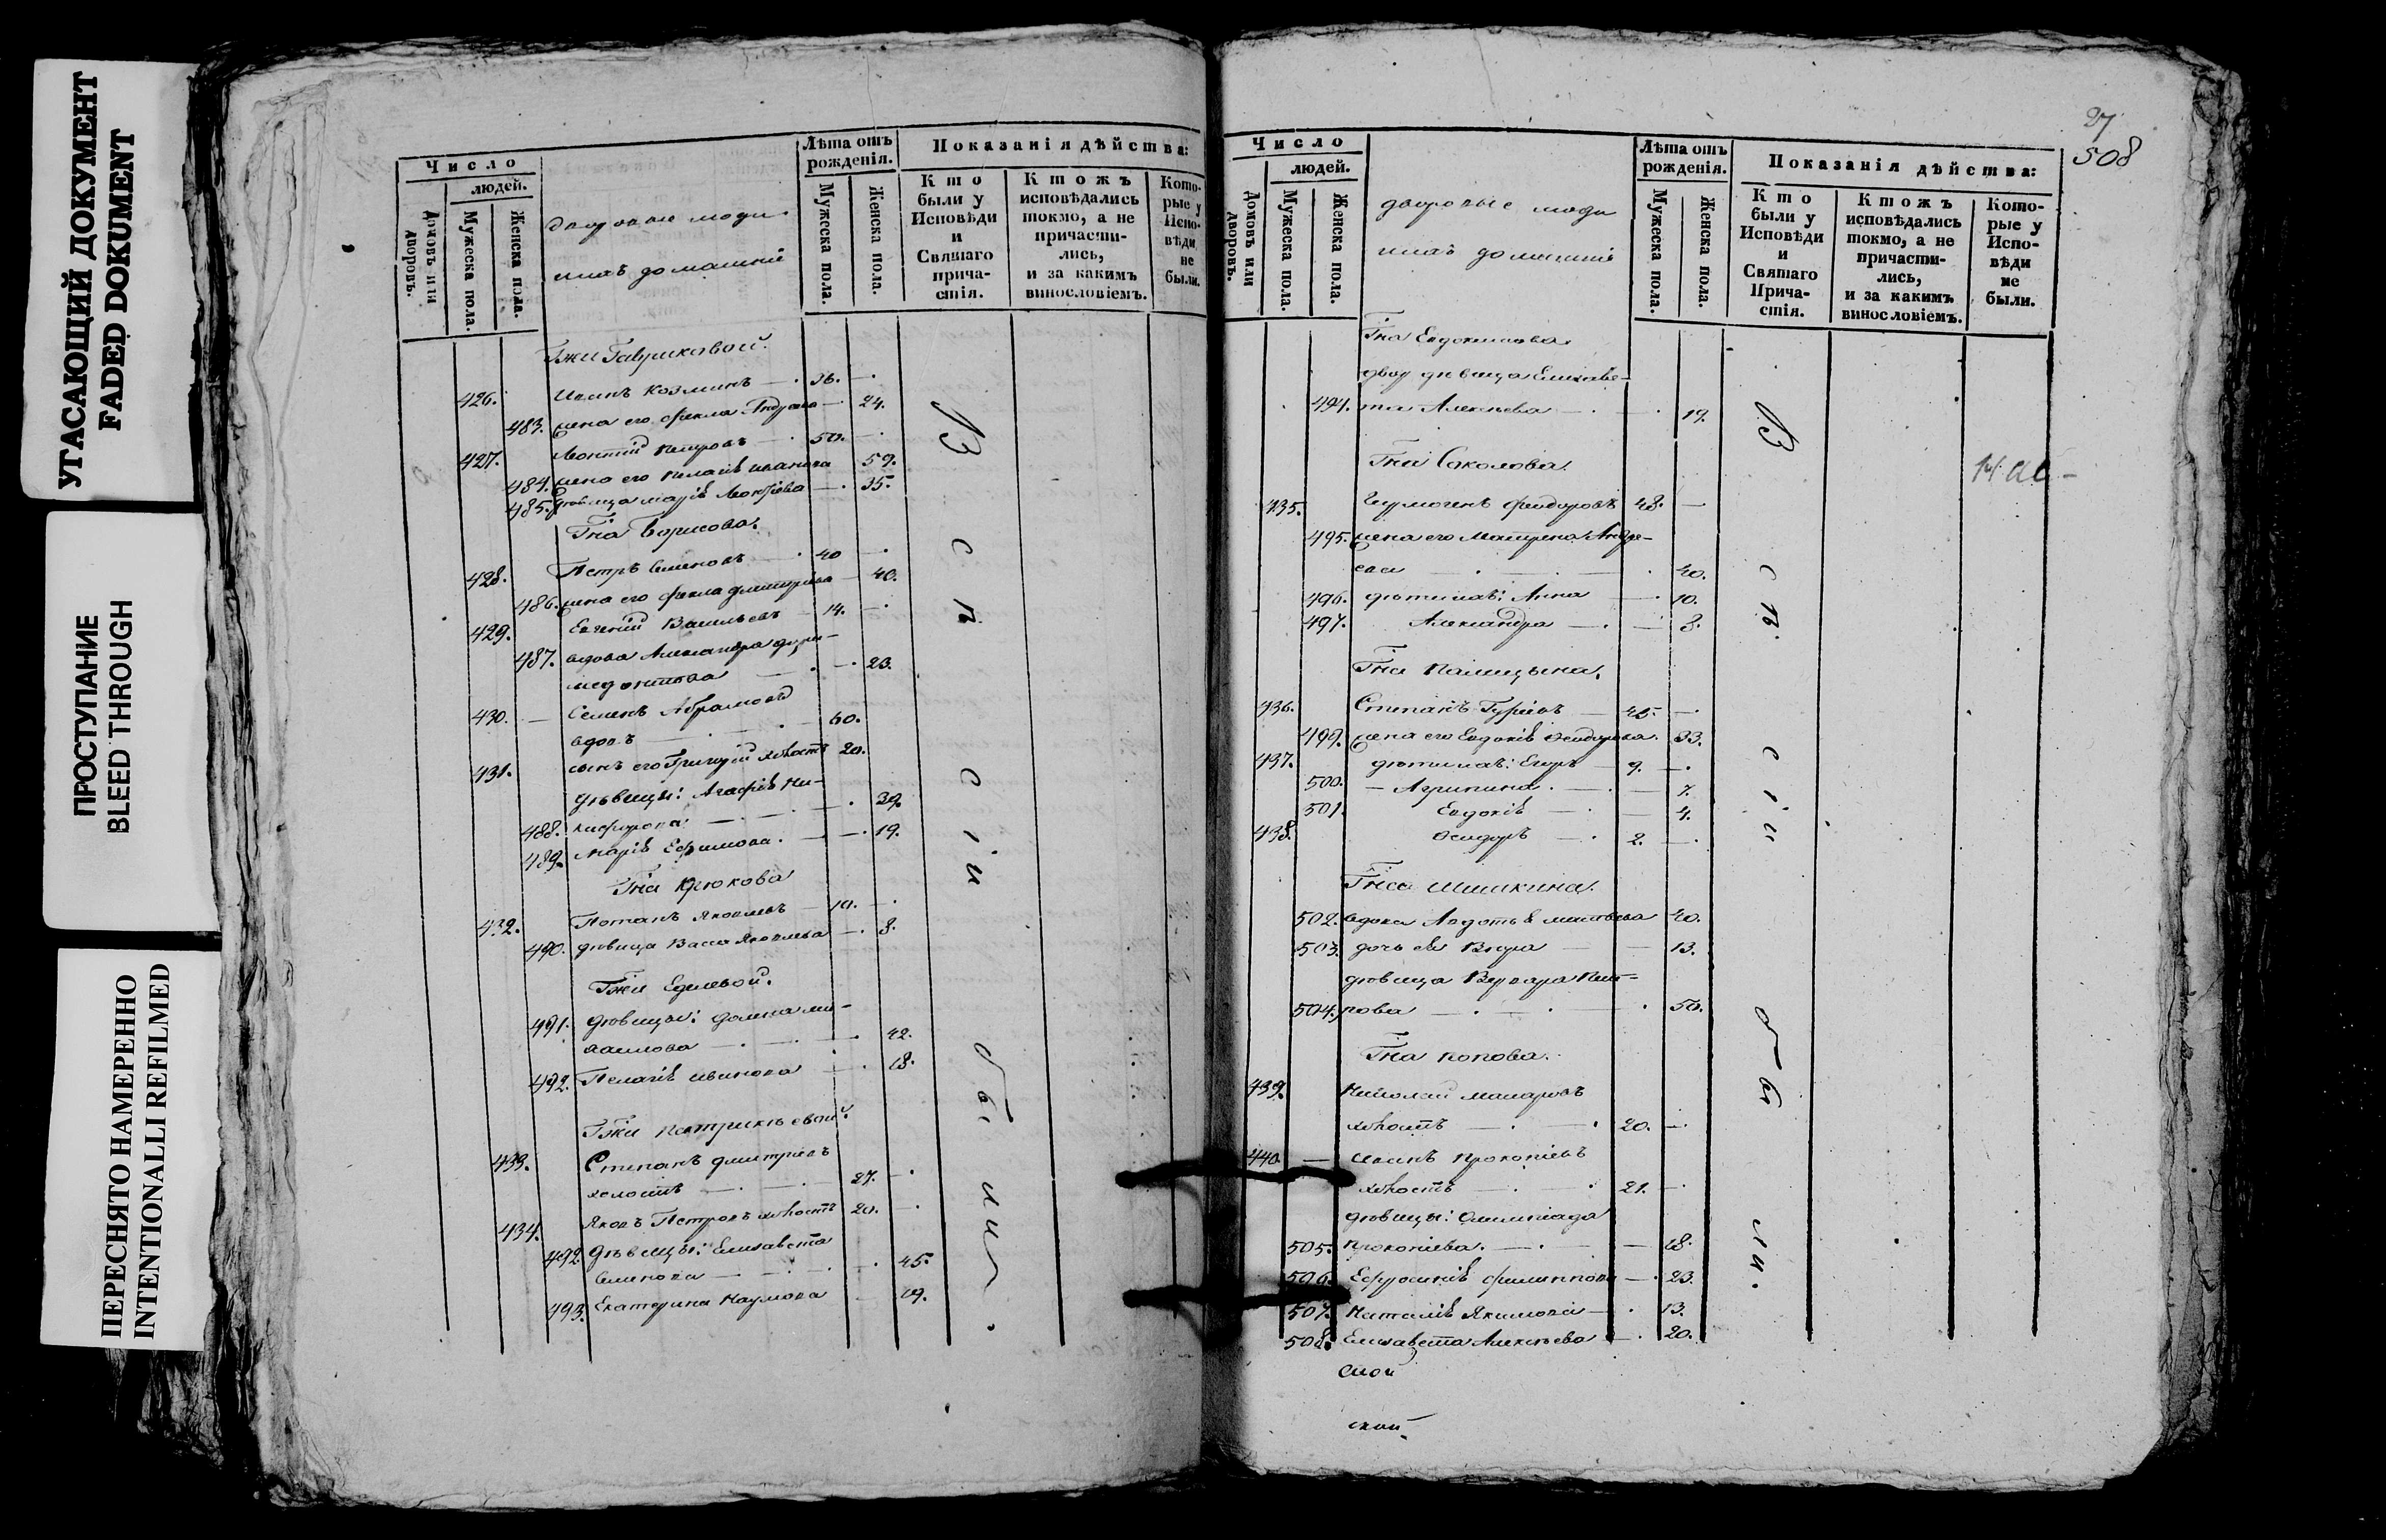 УГАСАЮЩИЙ ДОКУМЕНТ
FADED DOKUMENT
ПРОСТУПАНИЕ
BLEED THROUGH
ПЕРЕСНЯТО НАМЕРЕННО
INTENTIONALLI REFILMED
Число
людей.
Домовъ или дворовъ.
Мужеска пола.
Женска пола.
дворовые люди
ихъ домашніе
Лѣта отъ рожденія.
Мужеска пола.
Женска пола.
Показанія дѣйства:
Кто были у Исповѣди и Святаго причастія.
Ктожъ исповѣдались токмо, а не причастились, и за какимъ винословіемъ.
Которые у Исповѣди не были.
Гжи Гавриковой.
426. Иванъ Козминъ — 36. —
483. жена его Фекла Андреева — 24.
427. Леонтій Петровъ — 50. —
484. жена его Пелагія Иванова 59.
485. дѣвица Марія Леонтіева — 35.
Гна Борисова.
428. Петръ Семеновъ — 40 —
486. жена его Фекла Дмитріева — 40.
429. Евгеній Васильевъ — 14. —
487. вдова Александра
— 23.
430. — Семенъ Абрамовъ
вдовъ — 60.
431. сынъ его Григорій холостъ 20.
дѣвицы: Агафія Ни-
488. кифорова — 39.
489. Марія Ефимова. — 19.
Гна Крюкова
432. Потапъ Яковлевъ — 10. —
490. дѣвица Васса Яковлева — 8.
Гжи Едилевой.
491. дѣвицы: Домна Ми-
хаилова — 42.
492. Пелагія Иванова — 18.
Гжи Патрикѣевой.
433. Степанъ Дмитріевъ
холостъ — 27. —
434. Яковъ Петровъ холостъ 20. —
492. дѣвицы: Елизавета
Семенова — 45.
493. Екатерина Наумова 19.
В
с
п.
с
і
и
о
б.
и
л.
27
508
Число
людей.
Домовъ или дворовъ.
Мужеска пола.
Женска пола.
дворовые люди
ихъ домашніе
Лѣта отъ рожденія.
Мужеска пола.
Женска пола.
Показанія дѣйства:
Кто были у Исповѣди и Святаго Причастія.
Ктожъ исповѣдались токмо, а не причастились, и за какимъ винословіемъ.
Которые у Исповѣди не были.
Гна Евдокимова.
двор дѣвица Елизаве-
494. та Алексѣева — 19.
Гна Соколова.
435. Гермогенъ Феодоровъ 48. —
495. жена его Матрена Андре-
ева — 40.
496. дѣти ихъ: Анна — 10.
497. Александра — 8.
Гна Палицына.
436. Степанъ Гурьевъ — 45. —
499. жена его Евдокія Феодорова. 33.
437. дѣти ихъ: Егоръ — 9. —
500. — Агрипина. — 7.
501. Евдокія — 4.
438. Феодоръ — 2. —
Гна Шишкина.
502. вдова Авдотья 40.
503. дочь ея Вѣра — 13.
дѣвица Варвара Пет-
504. рова — 50.
Гна Попова.
439. Николай Макаровъ
холостъ — 20. —
440 — Иванъ Прокопіевъ
холостъ — 21. —
дѣвицы: Олимпіада
505. Прокопіева. — 18.
506. Ефросинія Филиппова — 23.
507. Наталія Якимова — 13.
508. Елизавета Алексѣева — 20.
ской
В
с
п.
с
і
и
о
б